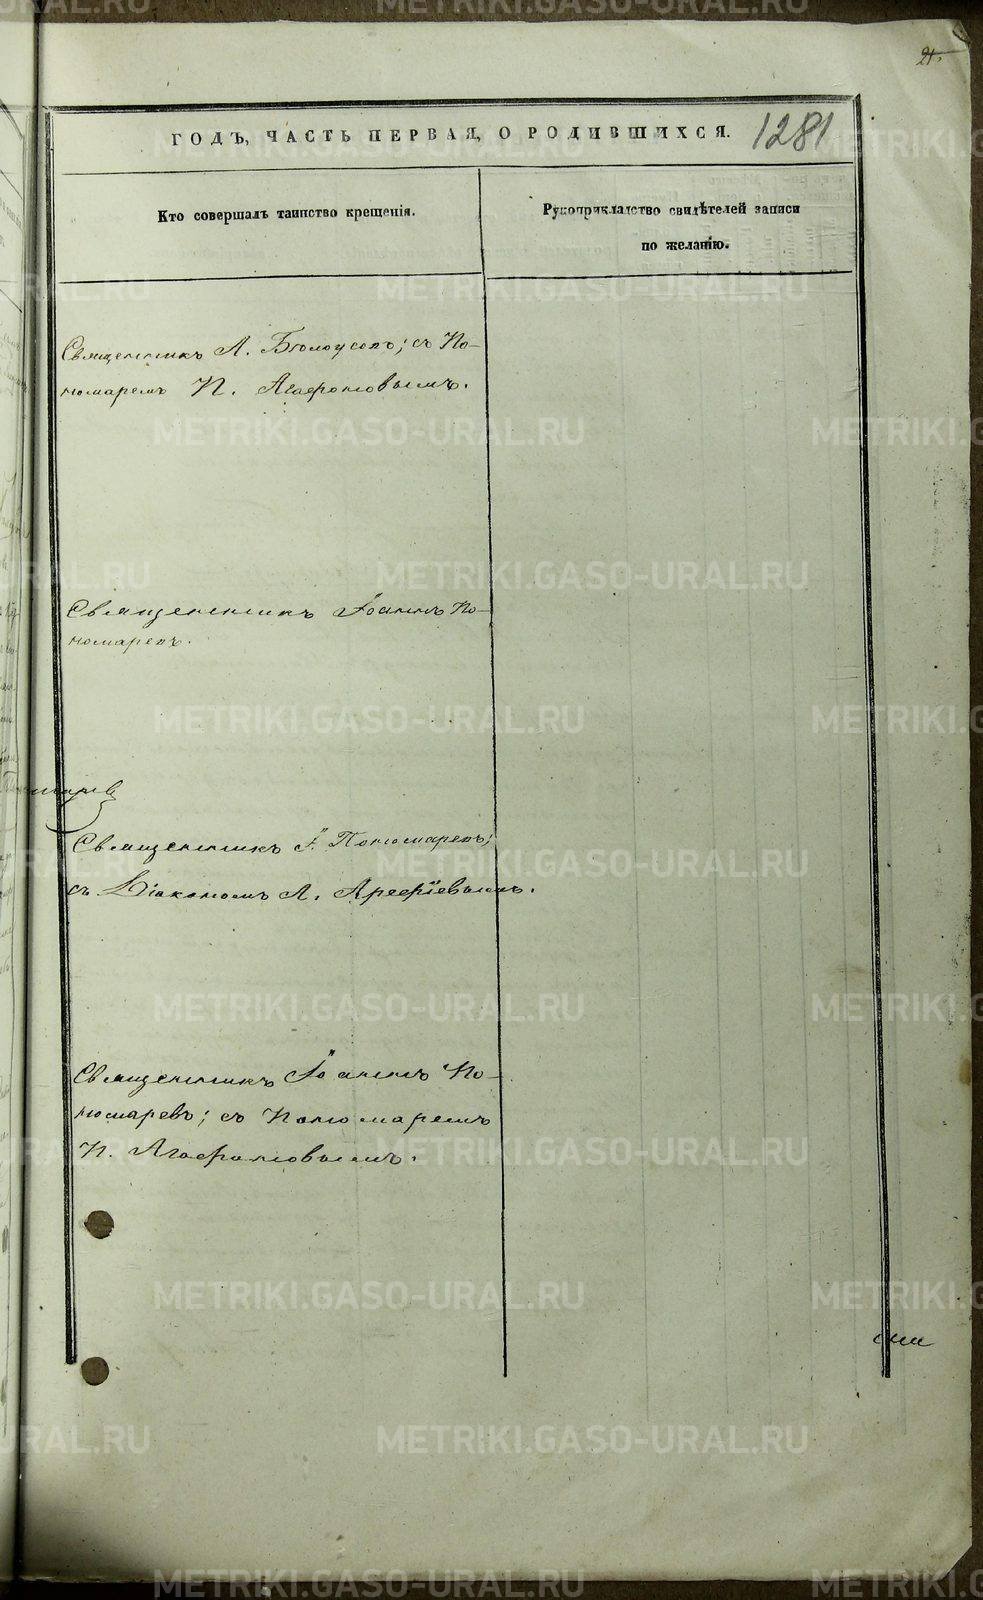 21.
ГОДЪ, ЧАСТЬ ПЕРВАЯ, О РОДИВШИХСЯ. 1281
Кто совершалъ таинство крещенія.
Рукоприкладство свидѣтелей записи
по желанію.
Священникъ А. Бѣлоусовъ; съ По-
номаремъ И. Агафоновымъ.
Священникъ Іоаннъ По-
номаревъ.
Священникъ І. Пономаревъ;
съ Діакономъ А. Арефіевымъ.
Священникъ Іоаннъ По-
номаревъ; съ Пономаремъ
И. Агафоновымъ.
METRIKI.GASO-URAL.RU